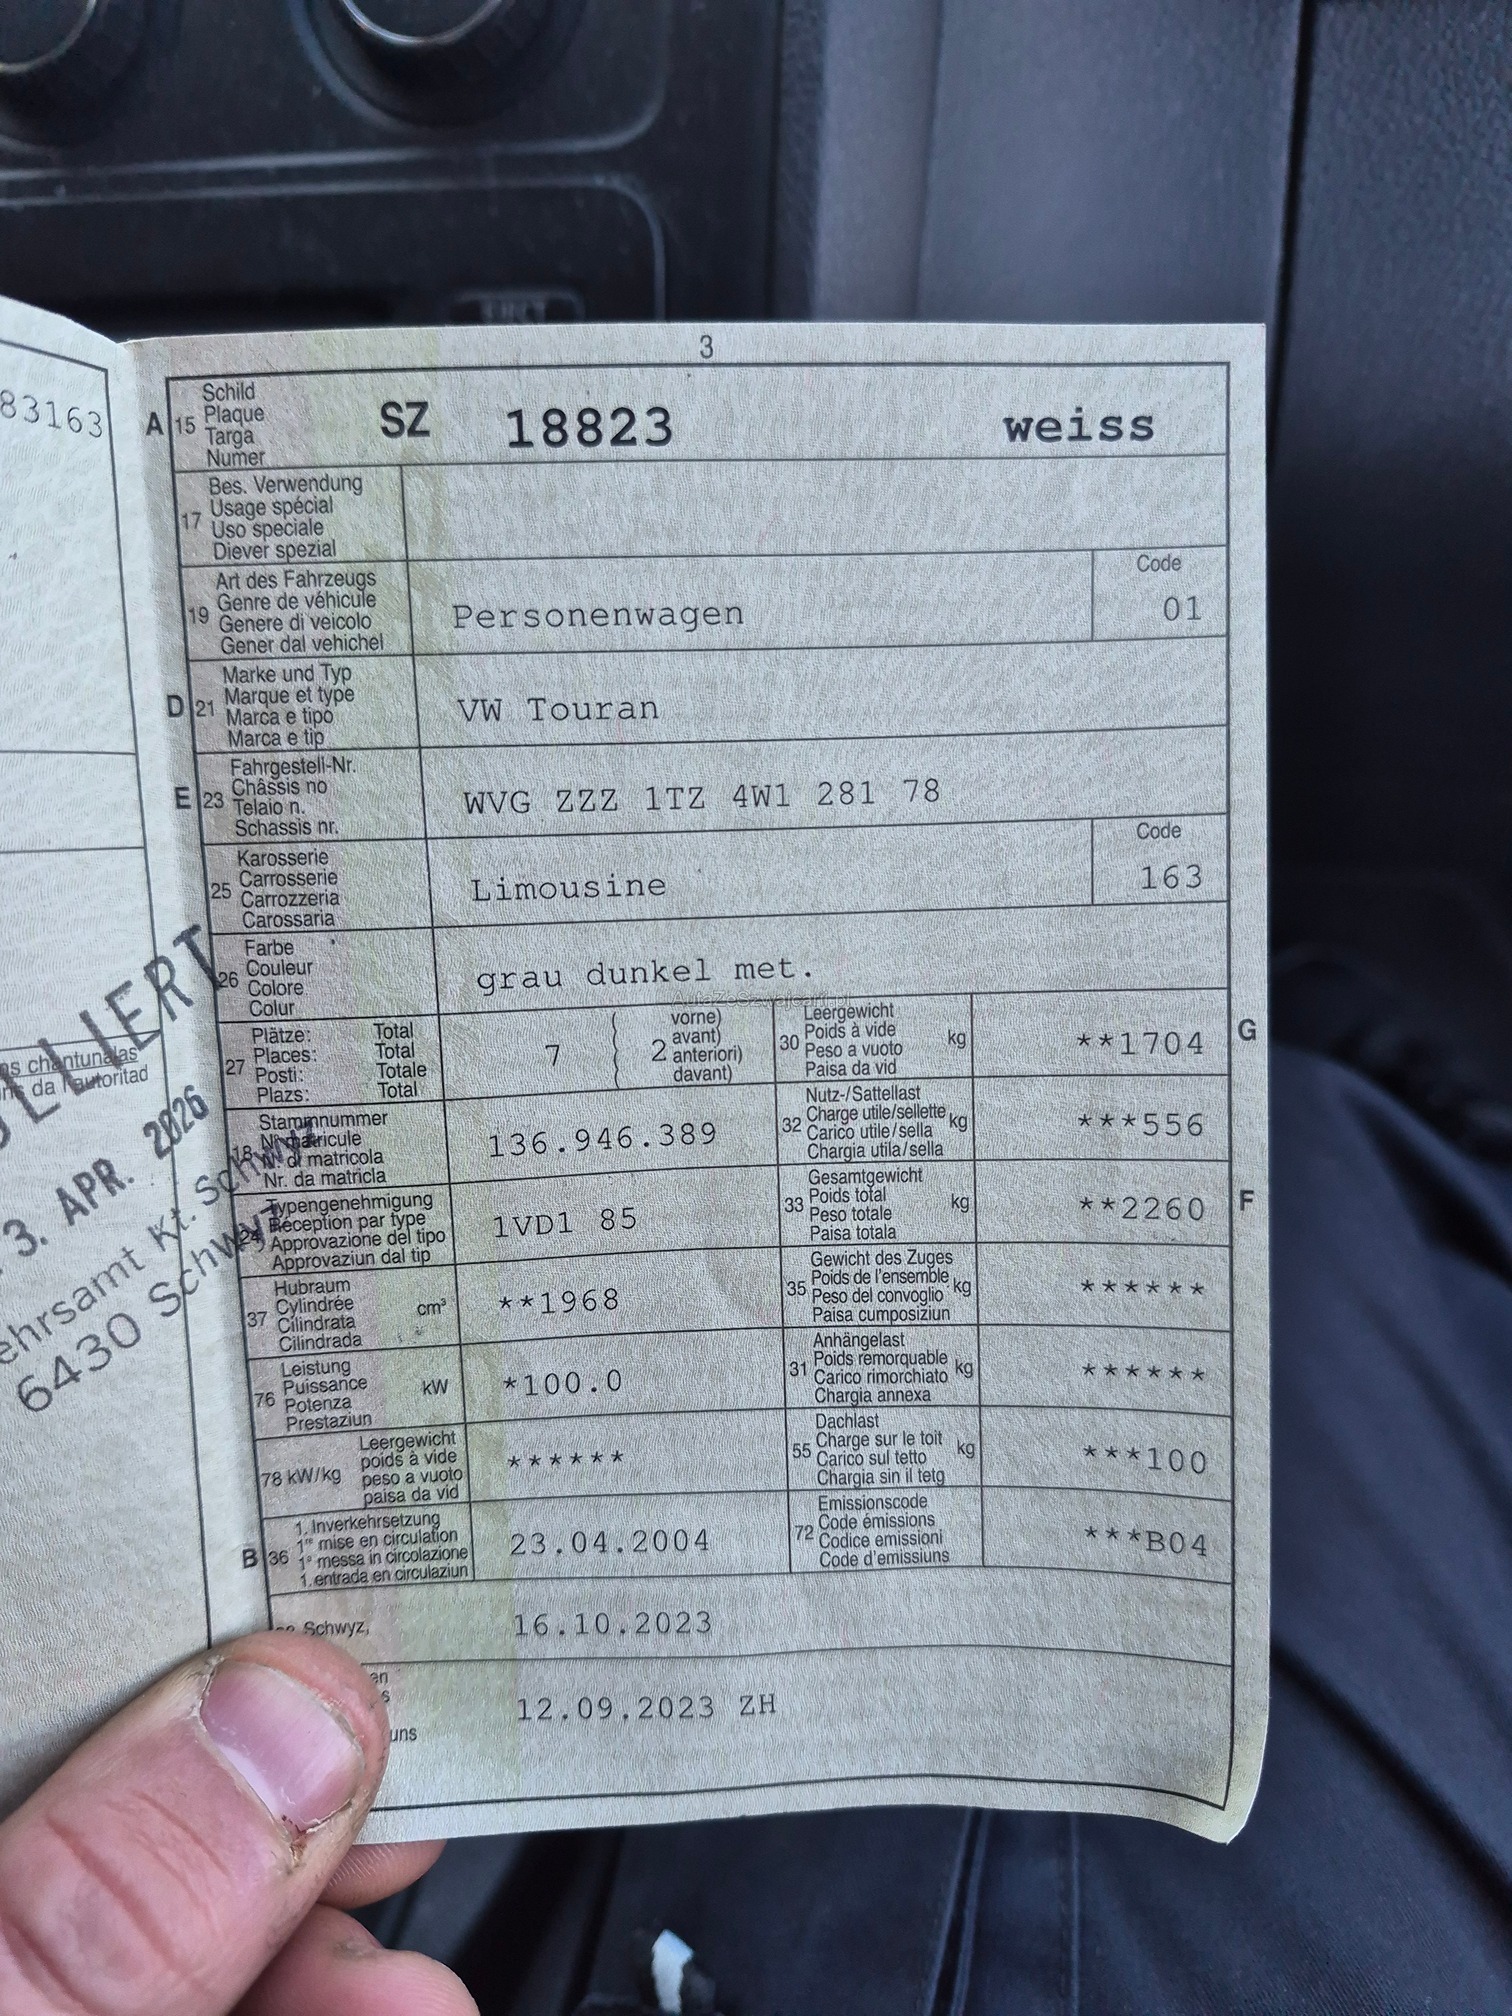 3
83163
A 15 Schild
Plaque
Targa
Numer
SZ 18823 weiss
17 Bes. Verwendung
Usage spécial
Uso speciale
Diever spezial
19 Art des Fahrzeugs
Genre de véhicule
Genere di veicolo
Gener dal vehichel
Personenwagen
Code
01
D 21 Marke und Typ
Marque et type
Marca e tipo
Marca e tip
VW Touran
E 23 Fahrgestell-Nr.
Châssis no
Telaio n.
Schassis nr.
WVG ZZZ 1TZ 4W1 281 78
25 Karosserie
Carrosserie
Carrozzeria
Carossaria
Limousine
Code
163
26 Farbe
Couleur
Colore
Colur
grau dunkel met.
27 Plätze: Total
Places: Total
Posti: Totale
Plazs: Total
7
2
vorne)
avant)
anteriori)
davant)
30 Leergewicht
Poids à vide
Peso a vuoto
Paisa da vid
kg
**1704
G
18 Stammnummer
No matricule
N. di matricola
Nr. da matricla
136.946.389
32 Nutz-/Sattellast
Charge utile/sellette
Carico utile/sella
Chargia utila/sella
kg
***556
24 Typengenehmigung
Réception par type
Approvazione del tipo
Approvaziun dal tip
1VD1 85
33 Gesamtgewicht
Poids total
Peso totale
Paisa totala
kg
**2260
F
37 Hubraum
Cylindrée
Cilindrata
Cilindrada
cm³
**1968
35 Gewicht des Zuges
Poids de l'ensemble
Peso del convoglio
Paisa cumposiziun
kg
******
76 Leistung
Puissance
Potenza
Prestaziun
kW
*100.0
31 Anhängelast
Poids remorquable
Carico rimorchiato
Chargia annexa
kg
******
78 kW/kg
Leergewicht
poids à vide
peso a vuoto
paisa da vid
******
55 Dachlast
Charge sur le toit
Carico sul tetto
Chargia sin il tetg
kg
***100
B 36 1. Inverkehrsetzung
1re mise en circulation
1a messa in circolazione
1. entrada en circulaziun
23.04.2004
72 Emissionscode
Code émissions
Codice emissioni
Code d'emissiuns
***B04
Schwyz,
16.10.2023
12.09.2023 ZH
uns
chantunalas
da l'autoritad
LLIERT
3. APR. 2026
ehrsamt Kt. Schwyz
6430 Schwyz
AutaZeSzwajcarii.pl